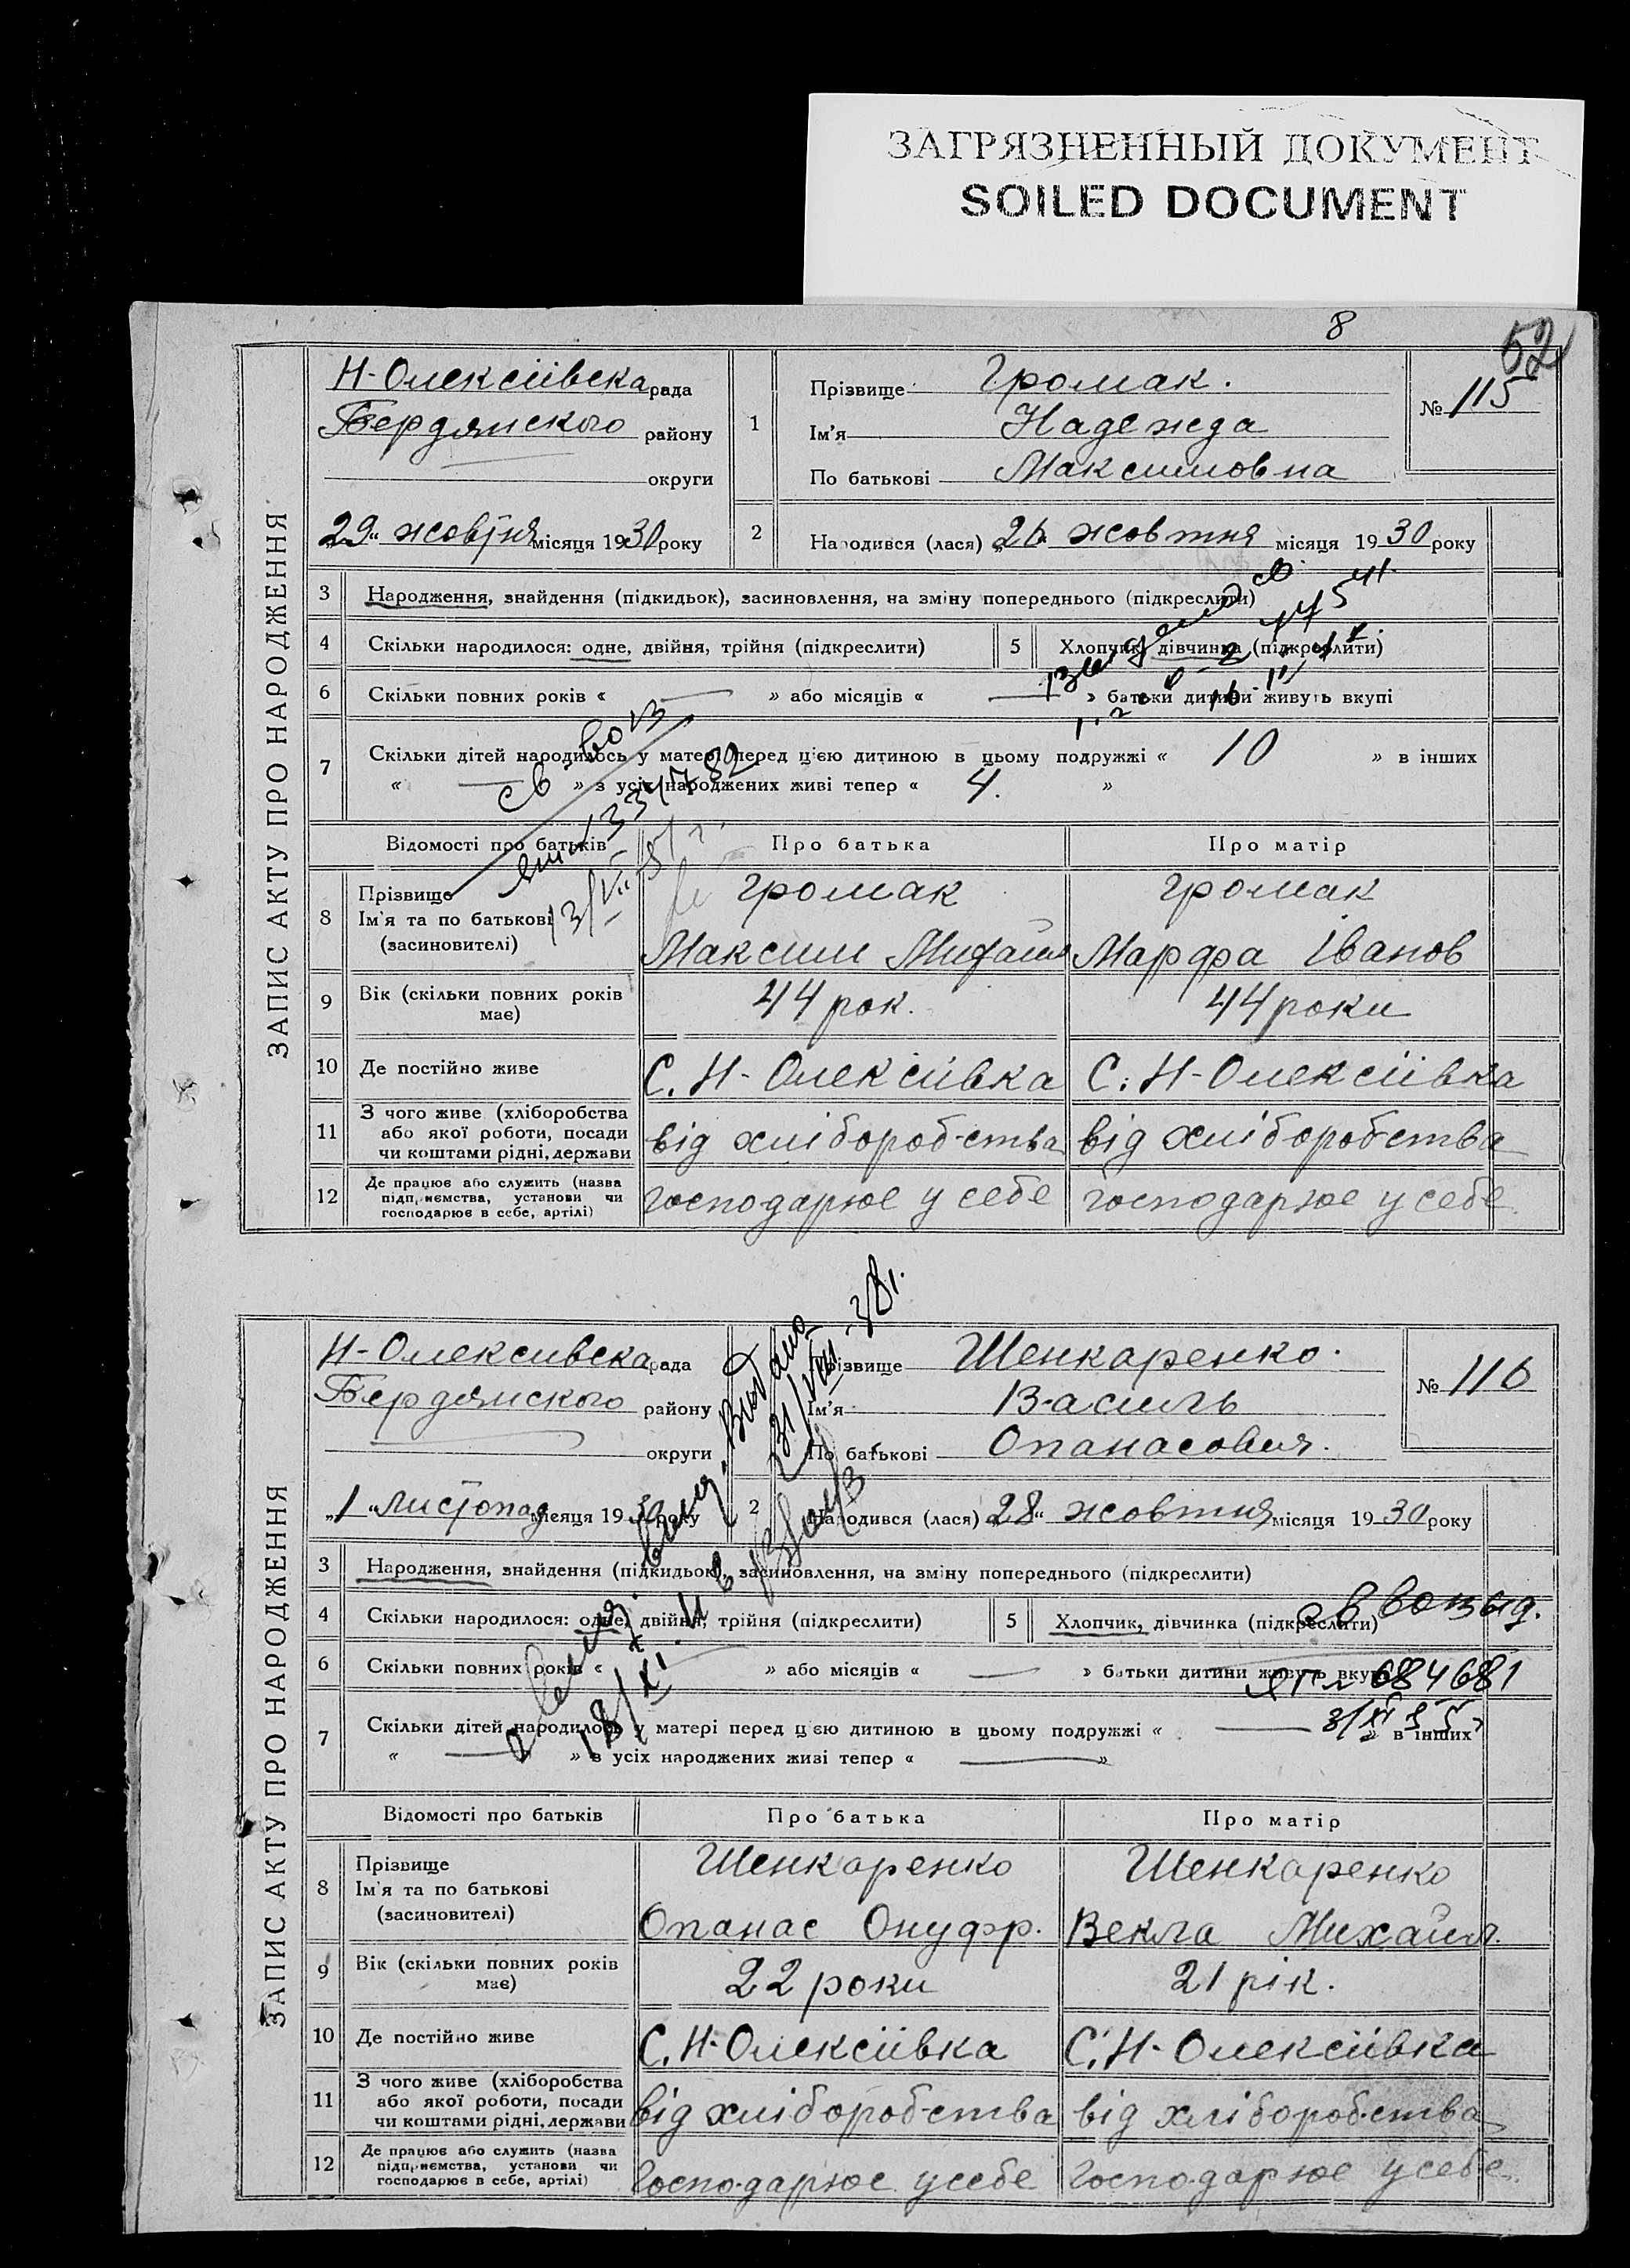 ЗАГРЯЗНЕННЫЙ ДОКУМЕНТ
SOILED DOCUMENT
8
52
ЗАПИС АКТУ ПРО НАРОДЖЕННЯ
Н-Олексіївска рада
Бердянского району
округи
„29“ жовтня місяця 1930 року
1
Прізвище Громак.
Ім'я Надежда
По батькові Максимовна
№ 115
2
Народився (лася) „26“ жовтня місяця 1930 року
3 Народження, знайдення (підкидьок), засиновлення, на зміну попереднього (підкреслити)
4 Скільки народилося: одне, двійня, трійня (підкреслити)
5 Хлопчик, дівчинка (підкреслити)
6 Скільки повних років « — » або місяців « — » батьки дитини живуть вкупі
7 Скільки дітей народилось у матері перед цією дитиною в цьому подружжі « 10 » в інших
« — » з усіх народжених живі тепер « 4. »
Відомості про батьків
Про батька
Про матір
8 Прізвище
Ім'я та по батькові
(засиновителі)
Громак
Максим Михайл
Громак
Марфа Іванов
9 Вік (скільки повних років має)
44 рок.
44 роки
10 Де постійно живе
С. Н-Олексіївка
С. Н-Олексіївка
11 З чого живе (хліборобства
або якої роботи, посади
чи коштами рідні, держави
від хліборобства
від хліборобства
12 Де працює або служить (назва
підприємства, установи чи
господарює в себе, артілі)
господарює у себе
господарює у себе
ЗАПИС АКТУ ПРО НАРОДЖЕННЯ
Н-Олексивска рада
Бердянского району
округи
„1“ листопад місяця 1930 року
Прізвище Шенкаренко.
Ім'я Василь
По батькові Опанасович.
№ 116
2
Народився (лася) „28“ жовтня місяця 1930 року
3 Народження, знайдення (підкидьок), засиновлення, на зміну попереднього (підкреслити)
4 Скільки народилося: одне, двійня, трійня (підкреслити)
5 Хлопчик, дівчинка (підкреслити)
6 Скільки повних років « » або місяців « — » батьки дитини живуть вкупі
684681
7 Скільки дітей народилось у матері перед цією дитиною в цьому подружжі « — » в інших
« — » з усіх народжених живі тепер « — »
Відомості про батьків
Про батька
Про матір
8 Прізвище
Ім'я та по батькові
(засиновителі)
Шенкаренко
Опанас Онуфр.
Шенкаренко
Векла Михайл.
9 Вік (скільки повних років має)
22 роки
21 рік.
10 Де постійно живе
С. Н-Олексіївка
С. Н-Олексіївка
11 З чого живе (хліборобства
або якої роботи, посади
чи коштами рідні, держави
від хліборобства
від хліборобства
12 Де працює або служить (назва
підприємства, установи чи
господарює в себе, артілі)
господарює у себе
господарює у себе